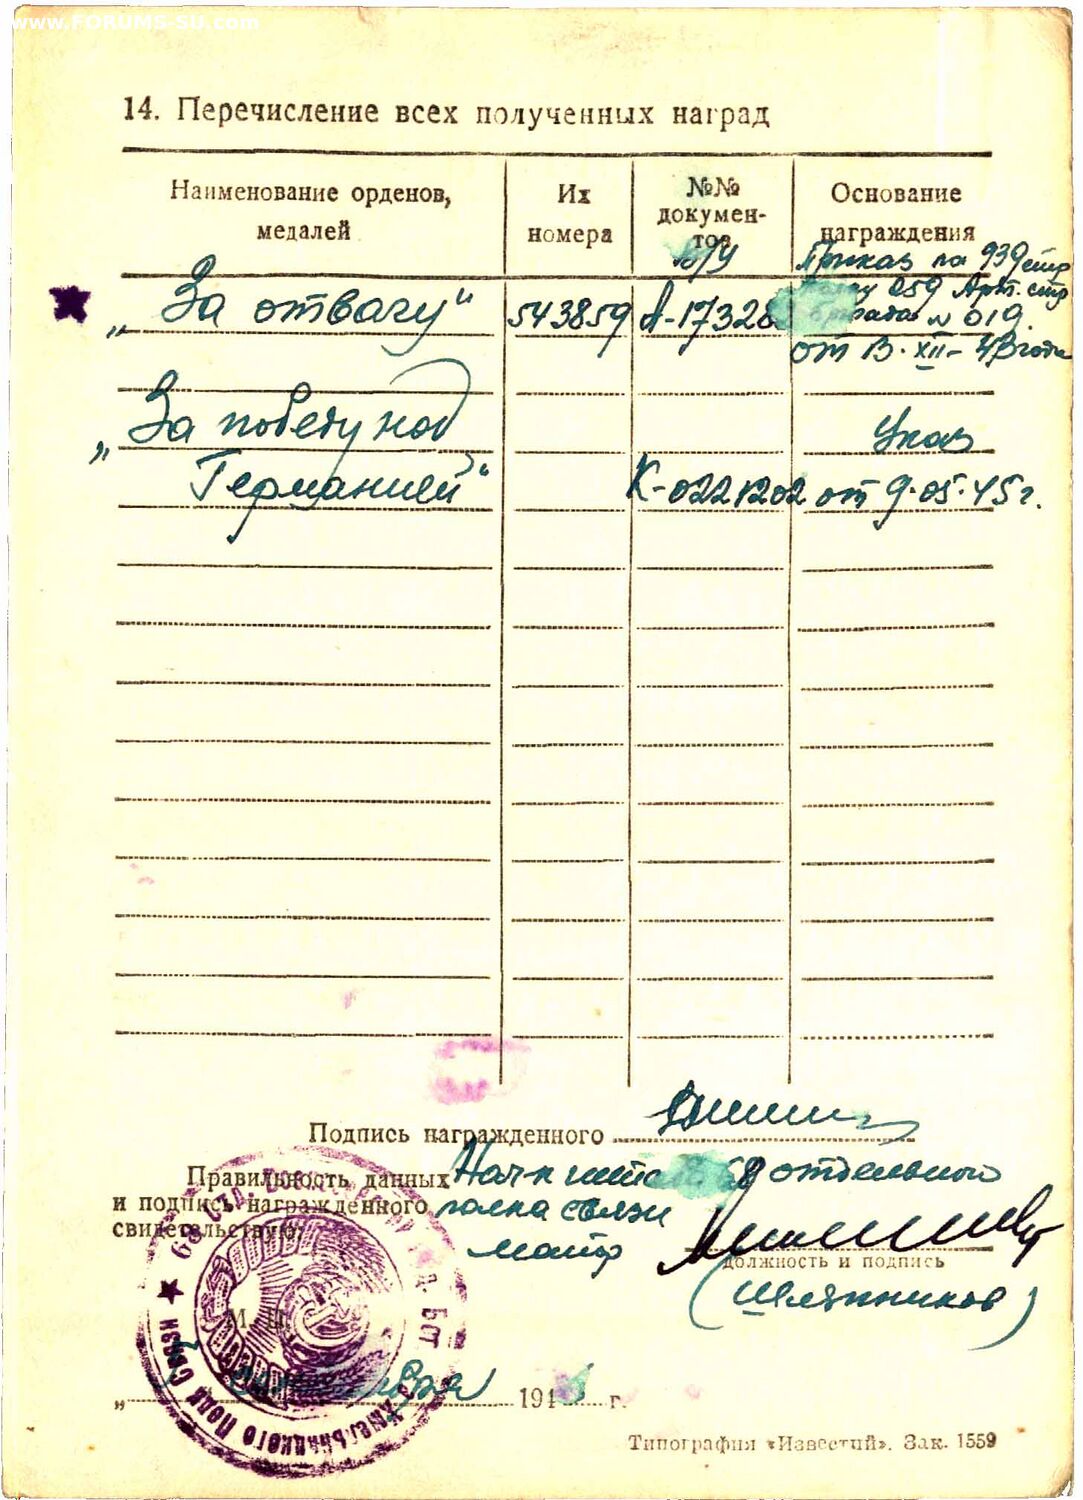 www.FORUMS-SU.com
14. Перечисление всех полученных наград
Наименование орденов, медалей
Их номера
№№ документов
Основание награждения
в/у
Приказ по 939 стр
„За отвагу“ 543859 А-17328
полку 259 Арт. стр
бригада № 019
от 13.XII-43 года
„За победу над
Германией“ К-0221202
Указ
от 9.05.45 г.
Подпись награжденного
Правильность данных
и подпись награжденного
свидетельствую:
Нач-к шта отдельного
полка связи
майор
должность и подпись
(Шляпников)
М. П.
" " 194 г.
Типография «Известий». Зак. 1559